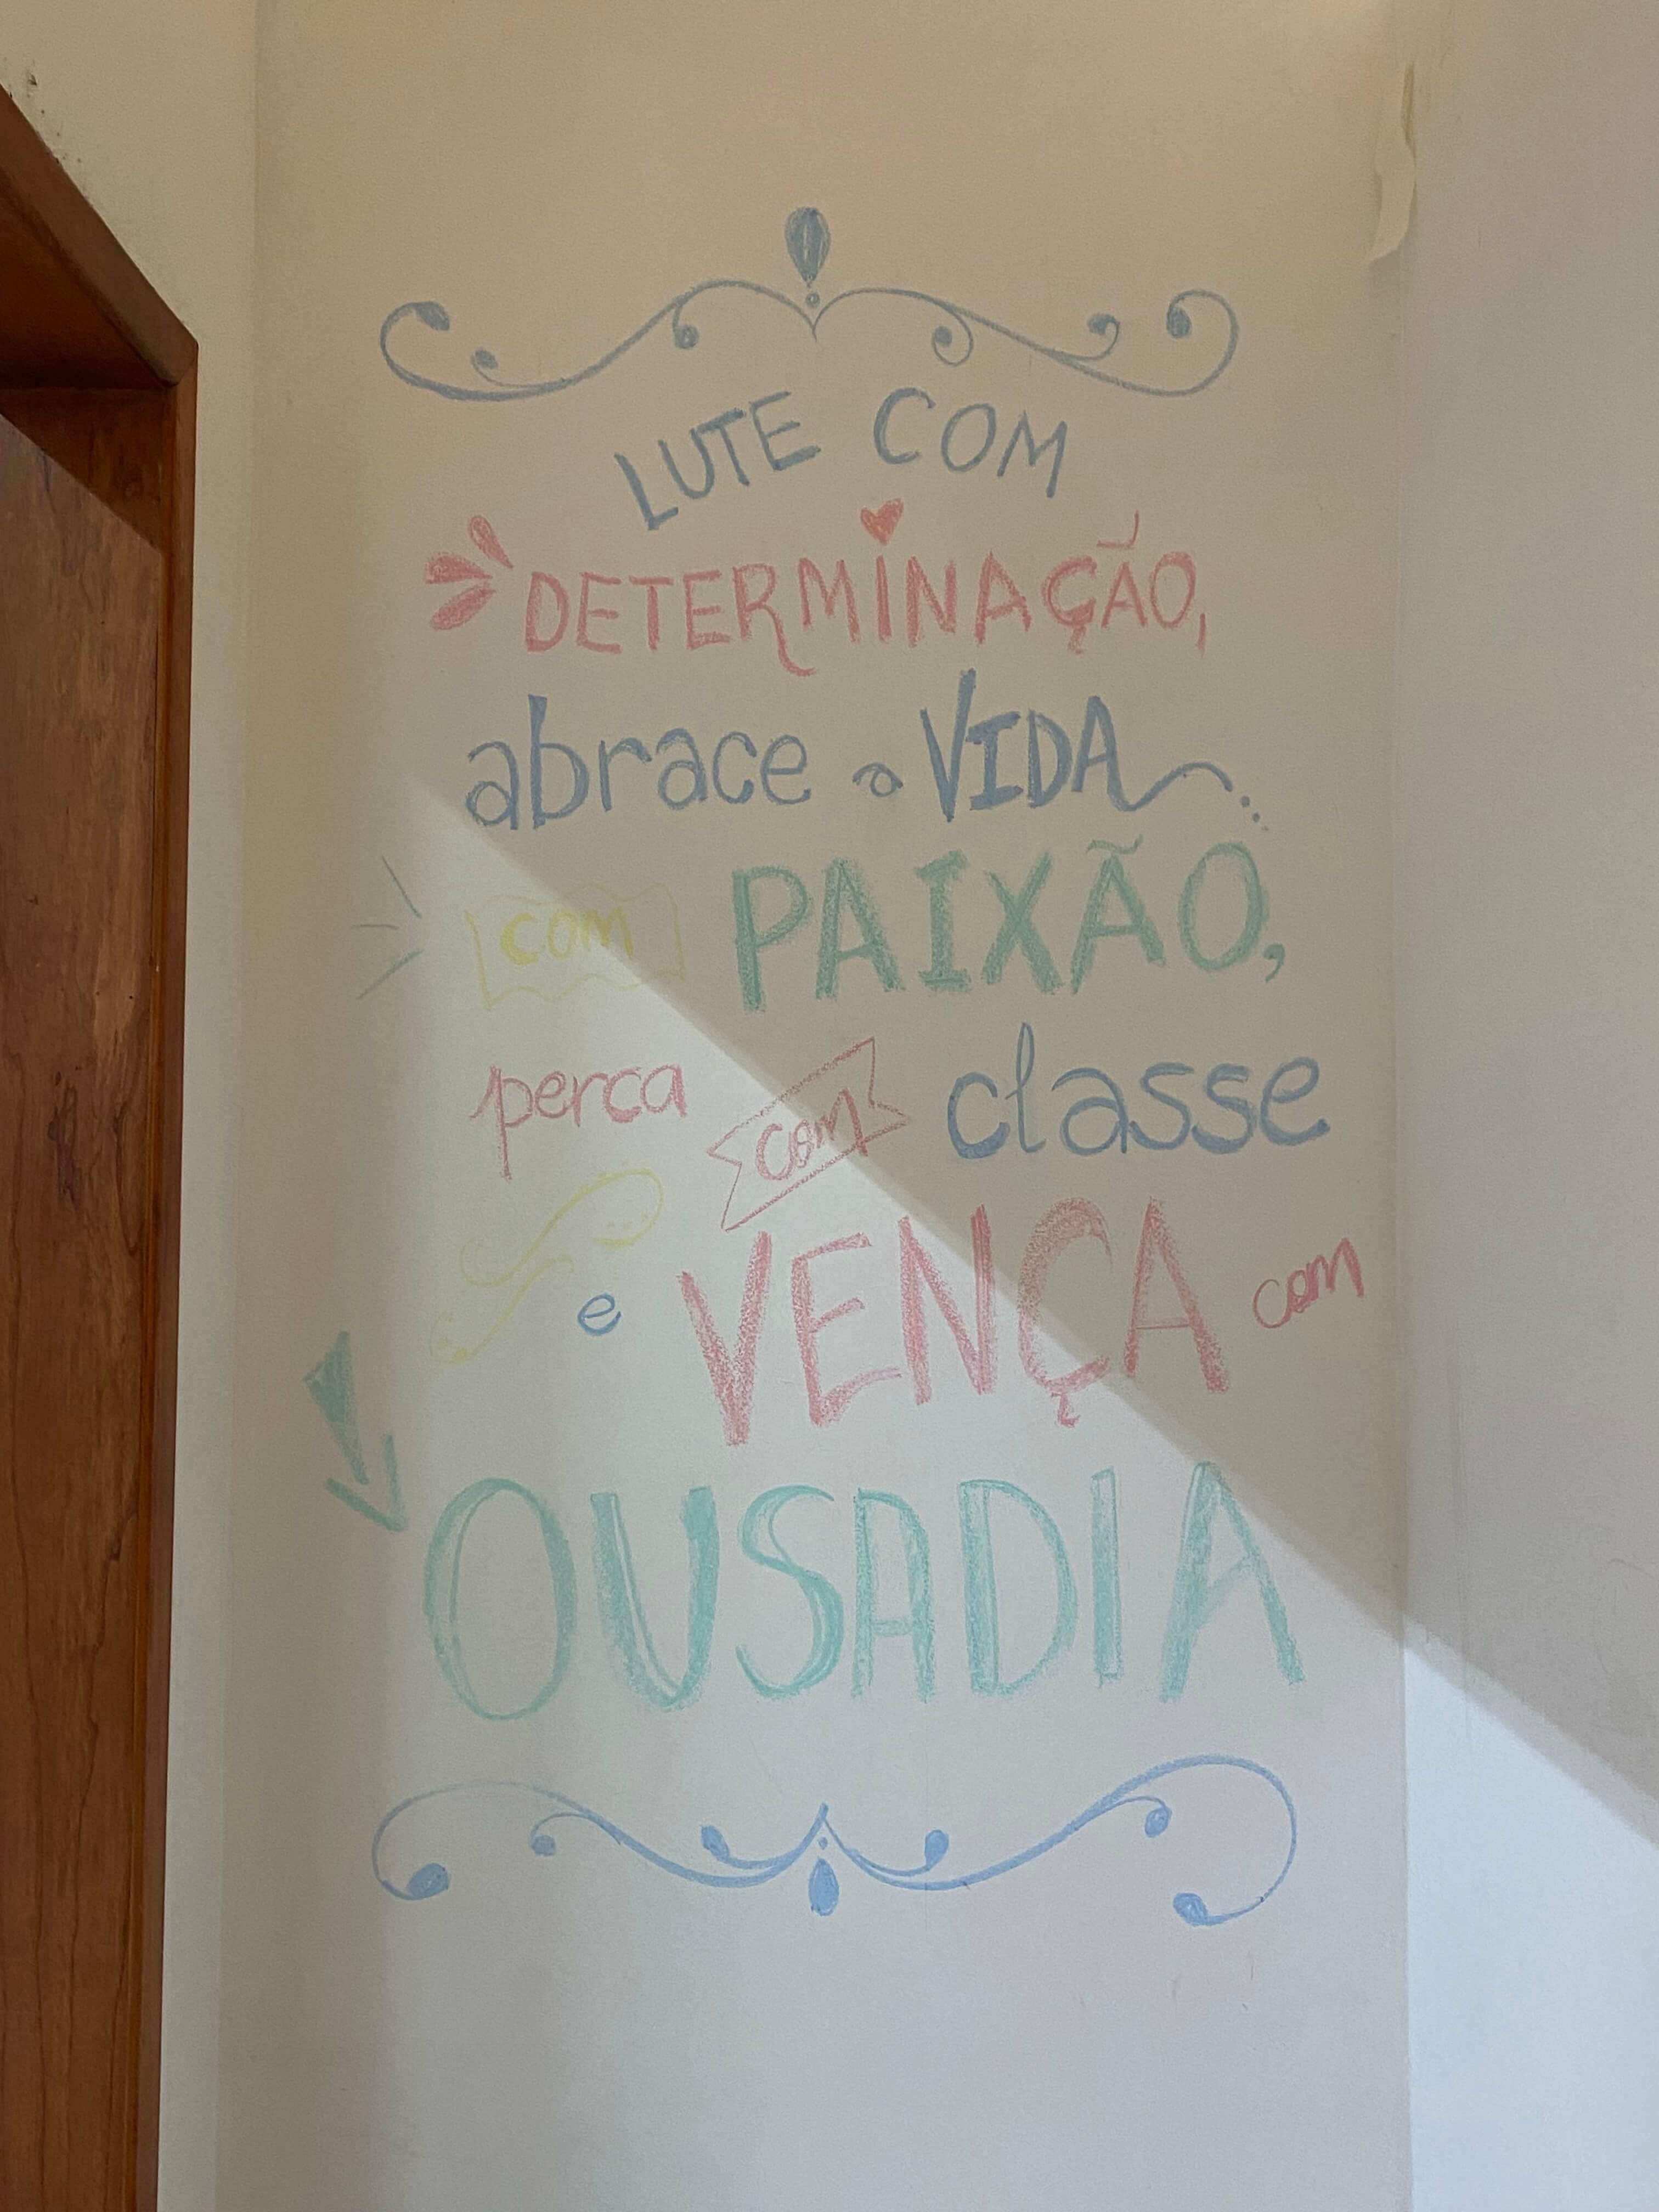 LUTE COM
DETERMINAÇÃO,
abrace a VIDA
com PAIXÃO,
perca com classe
e VENÇA com
OUSADIA